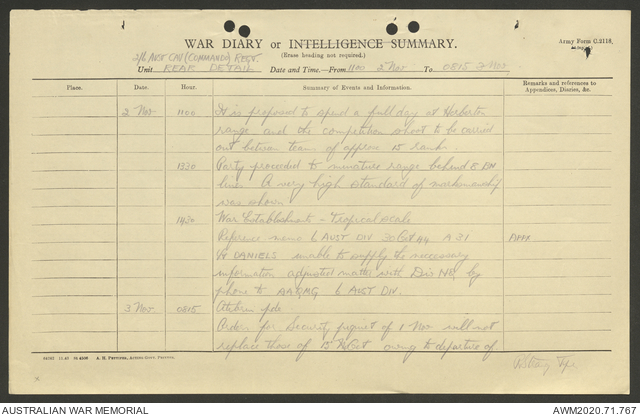 WAR DIARY or INTELLIGENCE SUMMARY.
(Erase heading not required.)
Army Form C.2118.
2/6 AUST CAV (COMMANDO) REGT.
Unit REAR DETAIL Date and Time.—From 1100 2 Nov To 0815 3 Nov
Place. Date. Hour. Summary of Events and Information. Remarks and references to Appendices, Diaries, &c.
2 Nov 1100 It is proposed to spend a full day at Herberton
range and the competition shoot to be carried
out between teams of approx 15 ranks.
1330 Party proceeded to miniature range behind E BN
lines. A very high standard of marksmanship
was shown
1430 War Establishments - Tropical scale
Reference memo 6 AUST DIV 30 Oct 44 A 31 APPX
DANIELS unable to supply the necessary
information adjusted matter with Div HQ by
phone to AAQMG 6 AUST DIV.
3 Nov 0815 Atebrin pde
Orders for Security of 1 Nov will not
replace those of 15 Oct owing to departure of
A. H. Pettifer, Acting Govt. Printer.
AUSTRALIAN WAR MEMORIAL
AWM2020.71.767